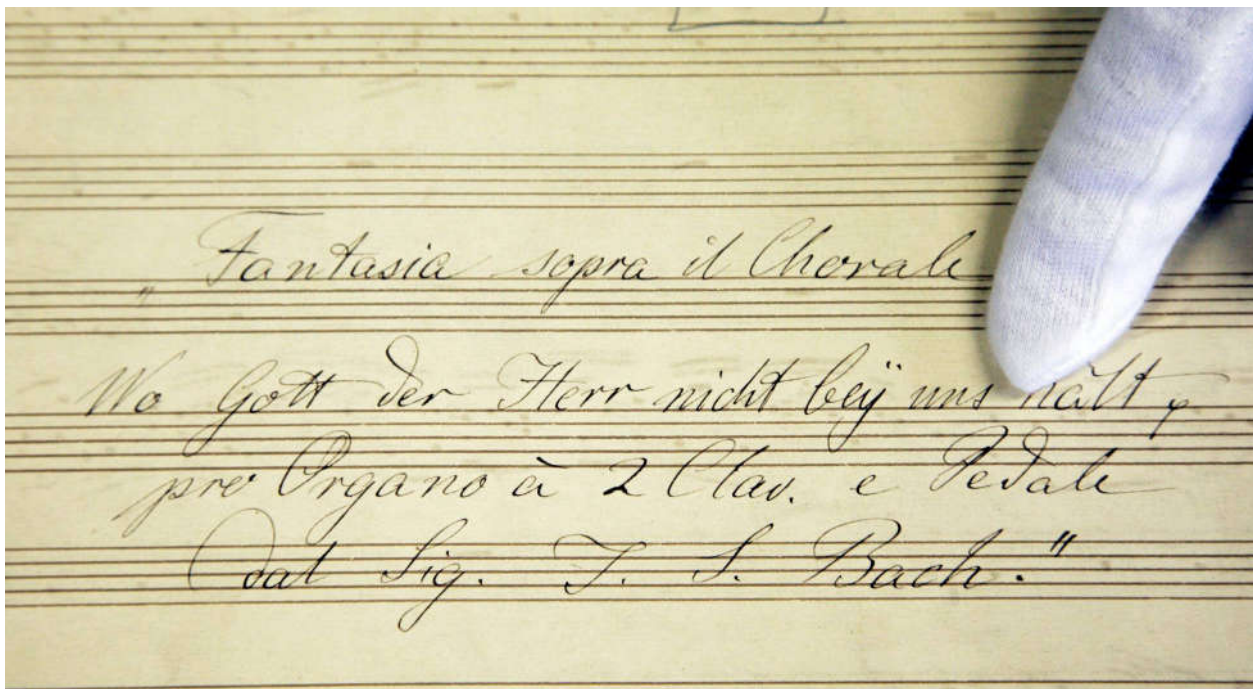 „Fantasia sopra il Chorale
Wo Gott der Herr nicht beÿ uns hält,
pro Organo à 2 Clav. e Pedale
dal Sig. J. S. Bach."